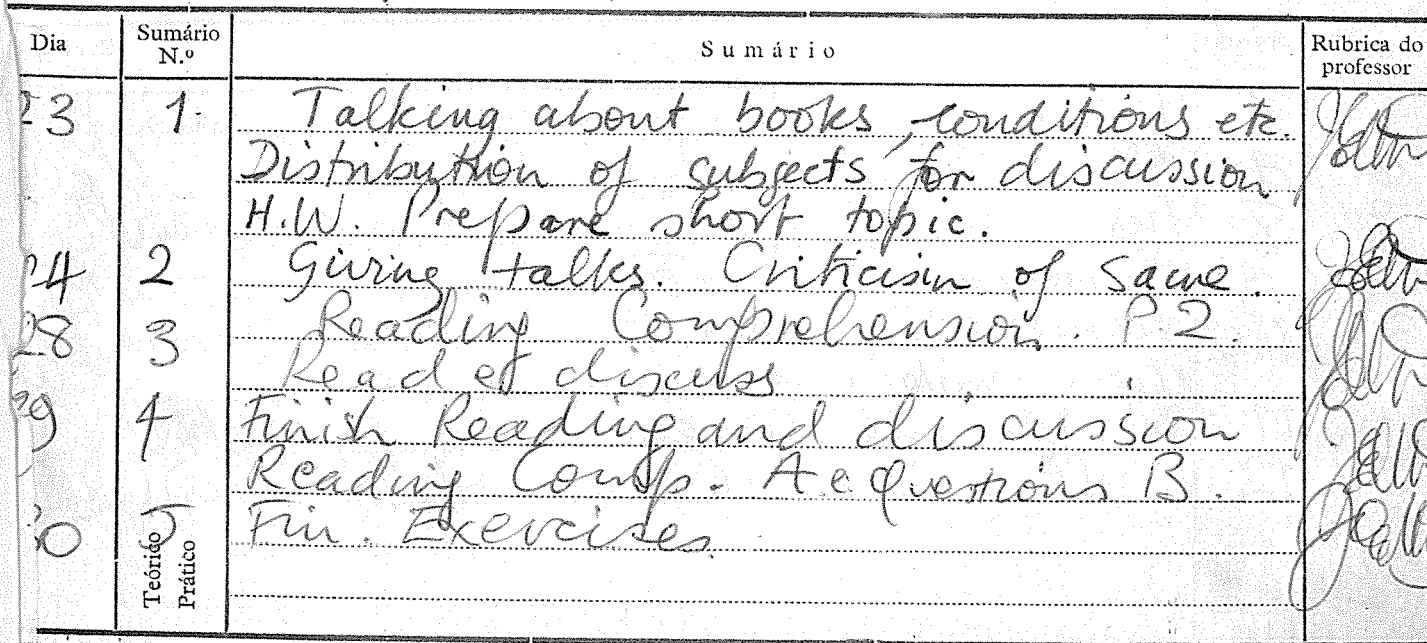 Dia Sumário N.º Sumário Rubrica do professor
23 1. Talking about books, conditions etc.
Distribution of subjects for discussion
H.W. Prepare short topic.
24 2 Giving talks. Criticism of same.
28 3 Reading Comprehension. P.2.
Read et discuss
29 4 Finish Reading and discussion
Reading Comp. A e Questions B.
30 5 Fin. Exercises
Teórico
Prático